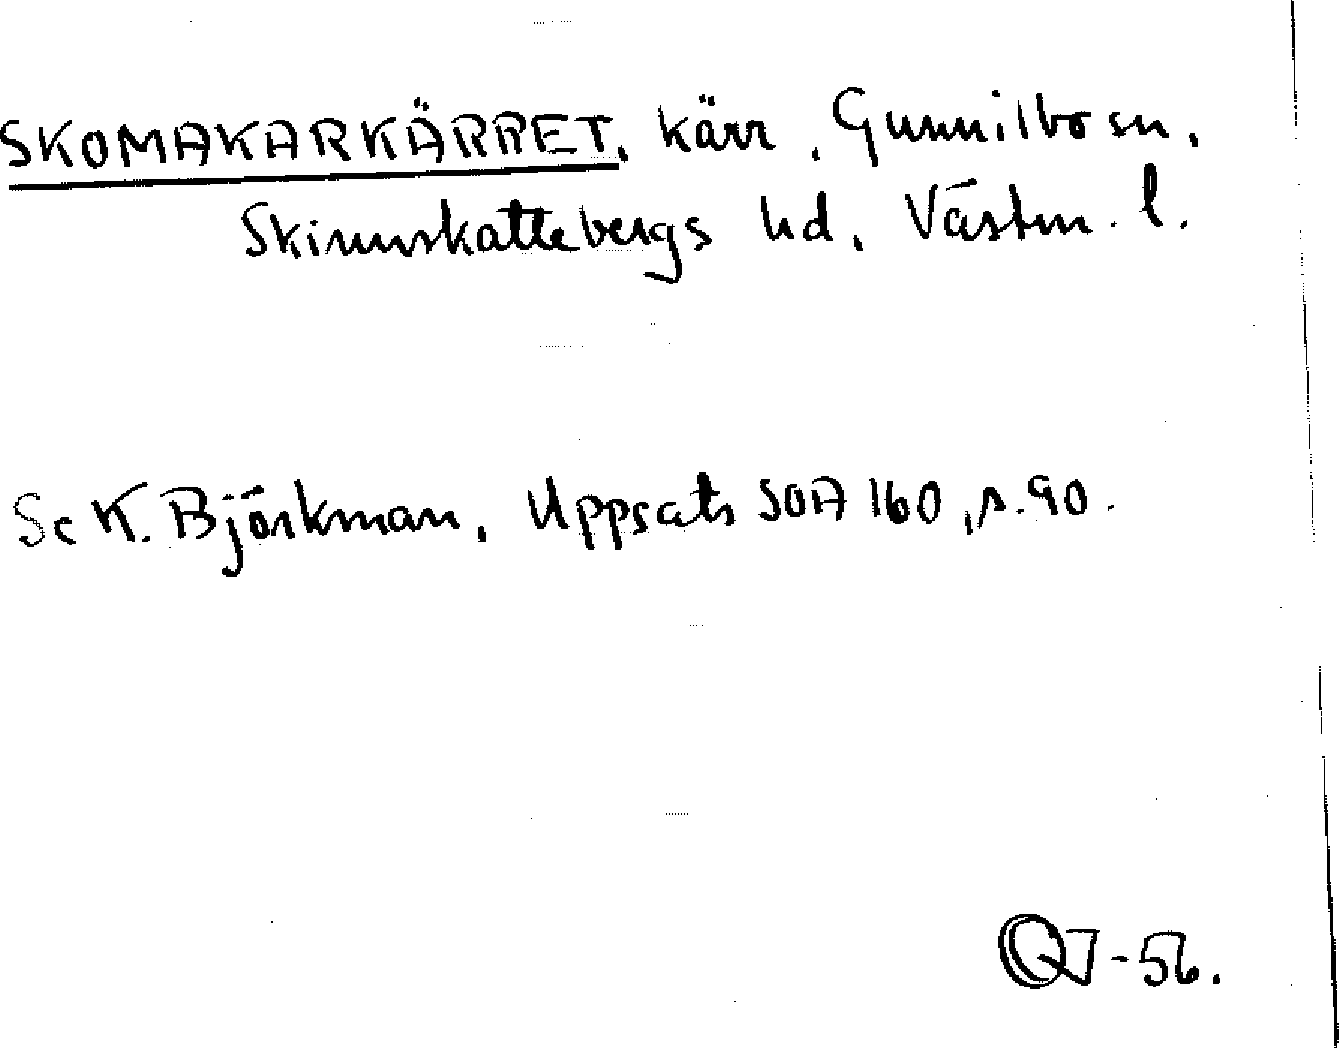 SKOMAKARKÄRRET, kärr, Gunnilbo sn,
Skinnskattebergs hd, Västm. l.
Se K. Björkman, Uppsats SOA 160, s. 90.
QJ-56.